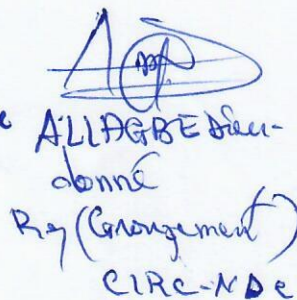 ALLAGBE Dieu-
donné
(Groupement)
CIRC-NDC